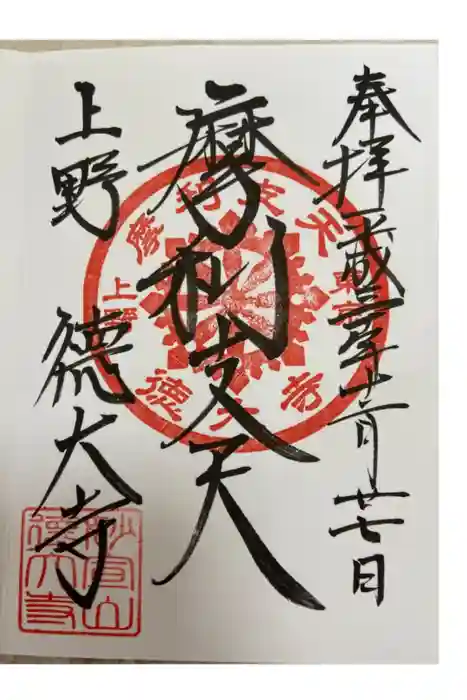 奉拝 平成三十年 月廿七日
摩利支天
上野 德大寺
摩利支天
上野
德大寺
妙宣山
德大寺